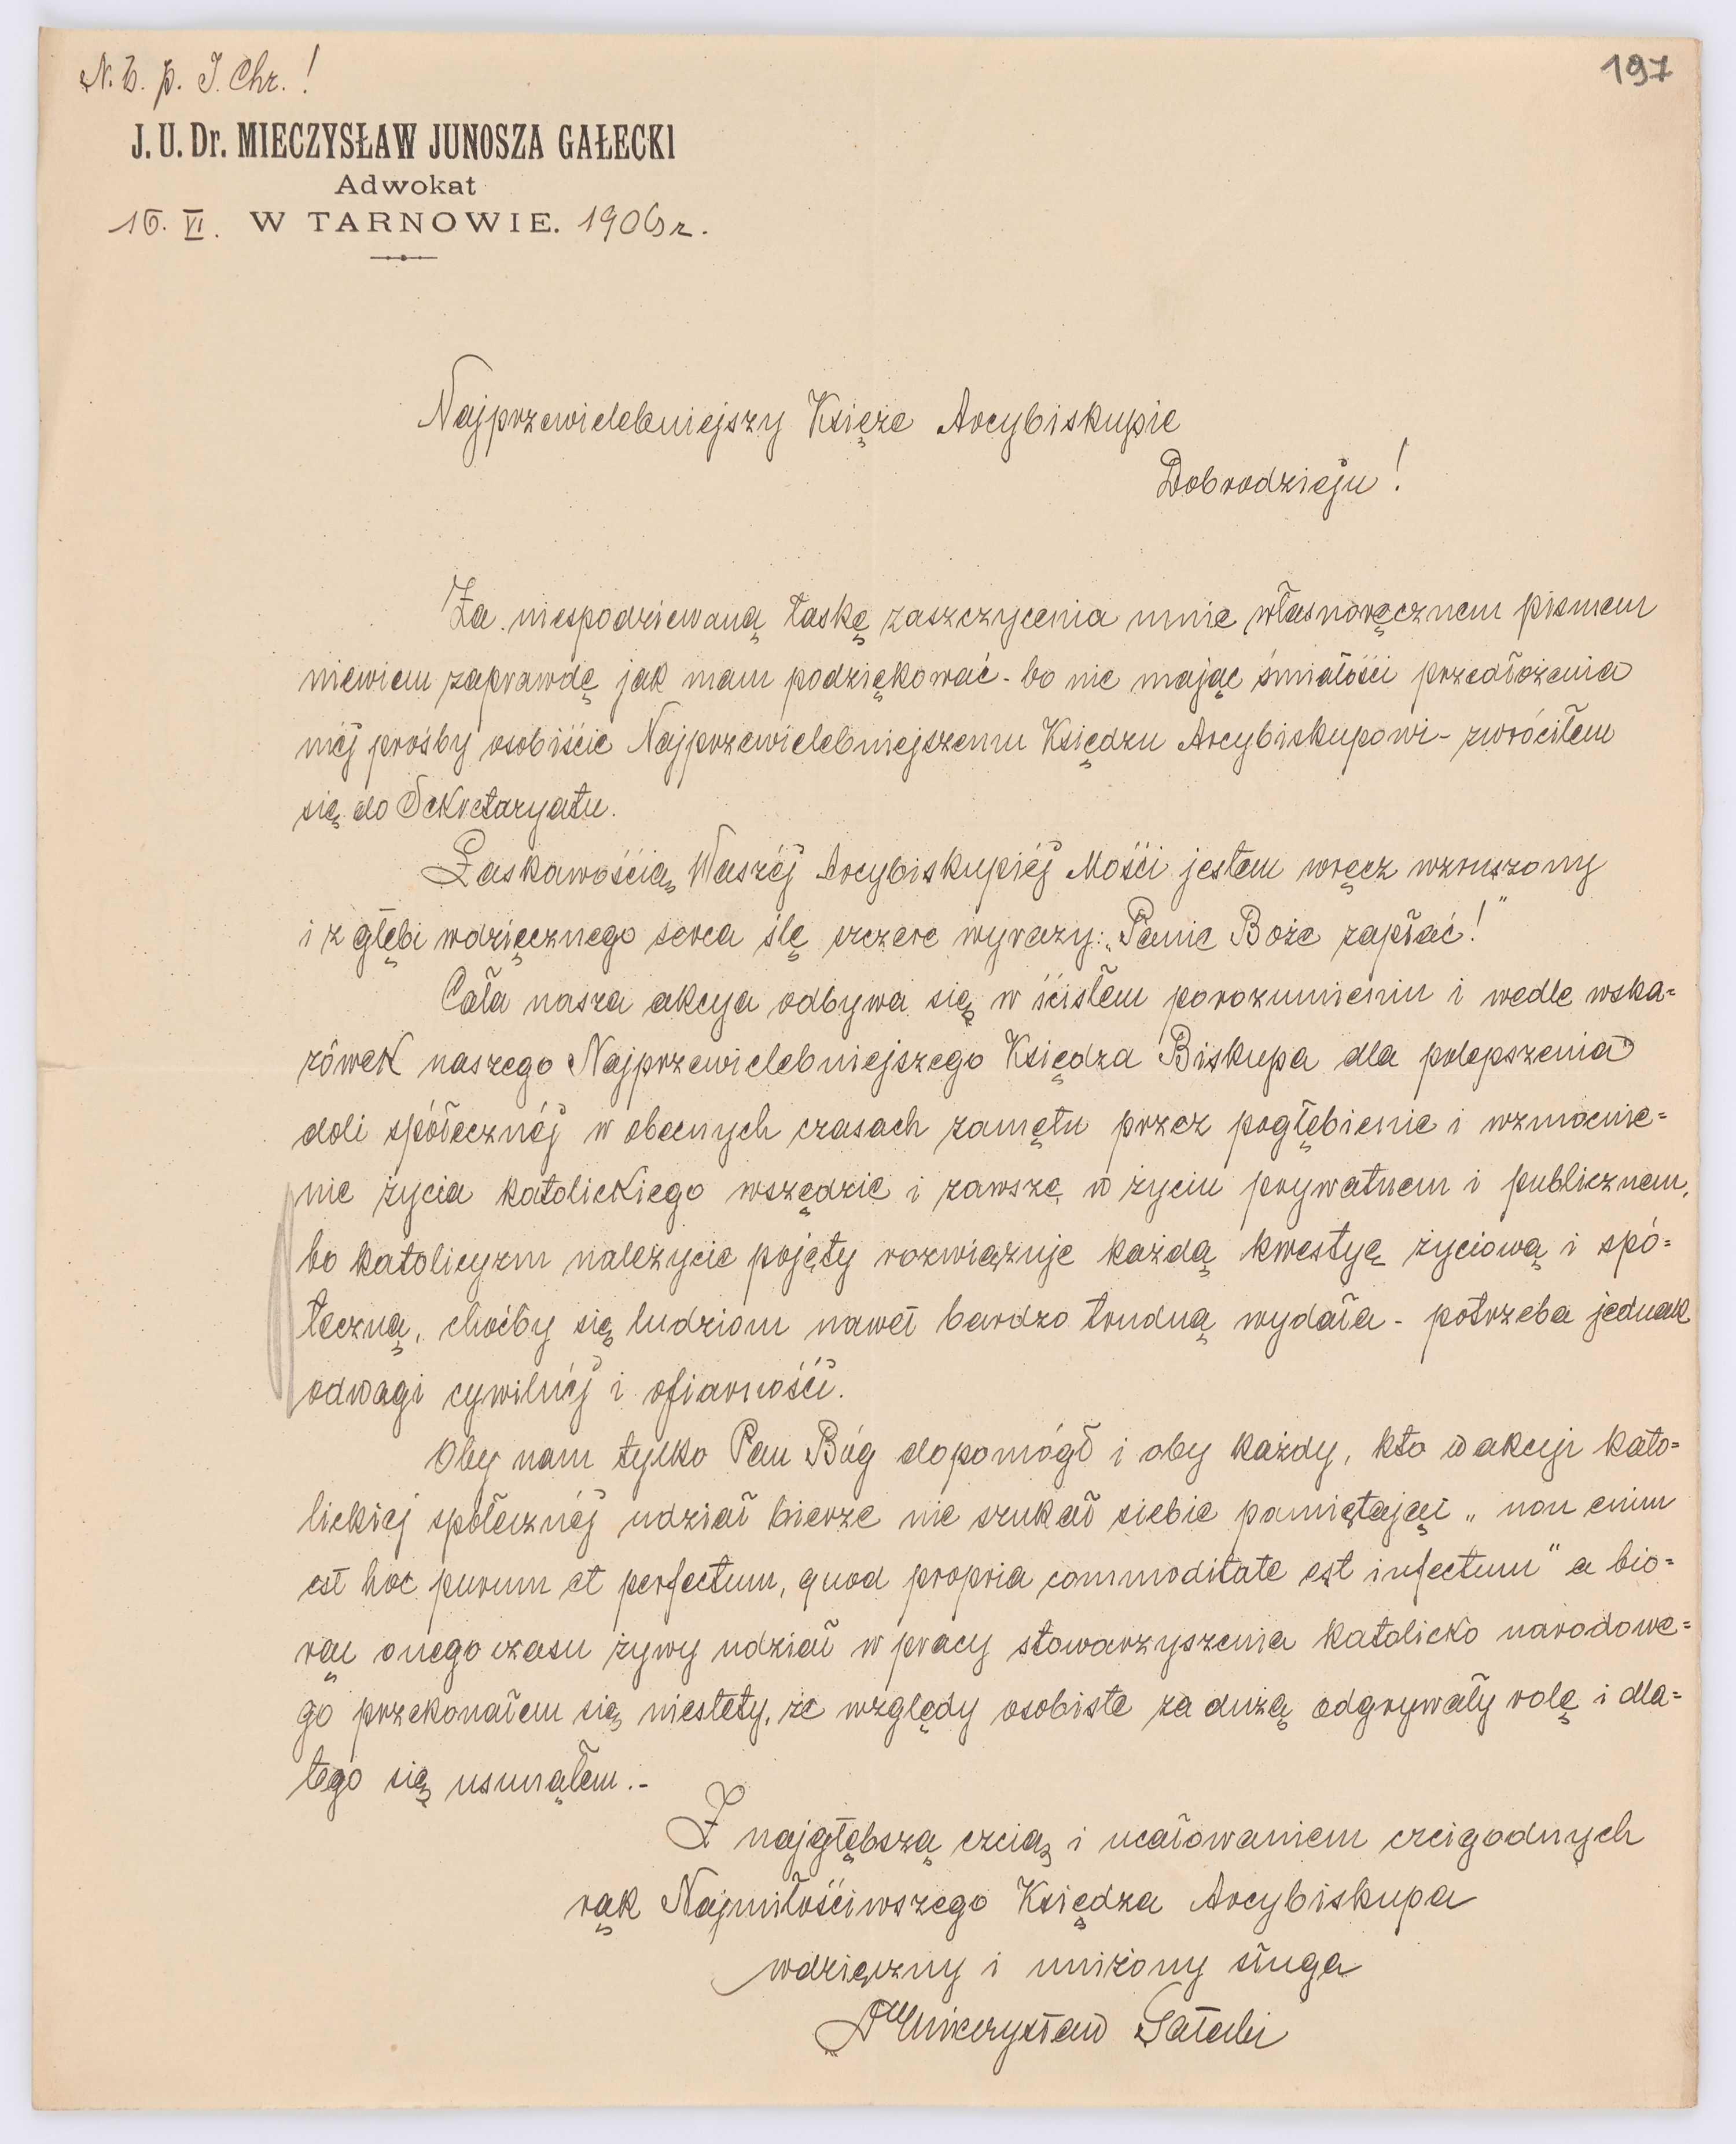 N. b. p. J. Chr.!
197
J. U. Dr. MIECZYSŁAW JUNOSZA GAŁECKI
Adwokat
16. VI. W TARNOWIE. 1906 r.
Najprzewielebniejszy Księże Arcybiskupie
Dobrodzieju!
Za niespodziewaną łaskę zaszczycenia mnie własnoręcznem pismem
niewiem zaprawdę jak mam podziękować - bo nie mając śmiałości przedłożenia
méj prośby osobiście Najprzewielebniejszemu Księdzu Arcybiskupowi - zwróciłem
się do Sekretaryatu.
Łaskawością Waszéj Arcybiskupiéj Mości jestem wręcz wzruszony
i z głębi wdzięcznego serca ślę szczere wyrazy: „Panie Boże zapłać!"
Cała nasza akcya odbywa się w ścisłem porozumieniu i wedle wska=
zówek naszego Najprzewielebniejszego Księdza Biskupa dla polepszenia
doli spółecznéj w obecnych czasach zamętu przez pogłębienie i wzmocnie=
nie życia katolickiego wszędzie i zawsze w życiu prywatnem i publicznem,
bo katolicyzm należycie pojęty rozwiązuje każdą kwestyę życiową i spó=
łeczną, choćby się ludziom nawet bardzo trudną wydała - potrzeba jednak
odwagi cywilnéj i ofiarności.
Oby nam tylko Pan Bóg dopomógł i oby każdy, kto w akcyi kato=
lickiéj społecznéj udział bierze nie szukał siebie pamiętając „non enim
est hoc purum et perfectum, quod propria commoditate est infectum" a bio=
rąc onego czasu żywy udział w pracy stowarzyszenia katolicko narodowe=
go przekonałem się niestety, że względy osobiste za dużą odgrywały rolę i dla=
tego się usunąłem.-
Z najgłębszą czcią i ucałowaniem czcigodnych
rąk Najmiłościwszego Księdza Arcybiskupa
wdzięczny i uniżony sługa
Dr Mieczysław Gałecki